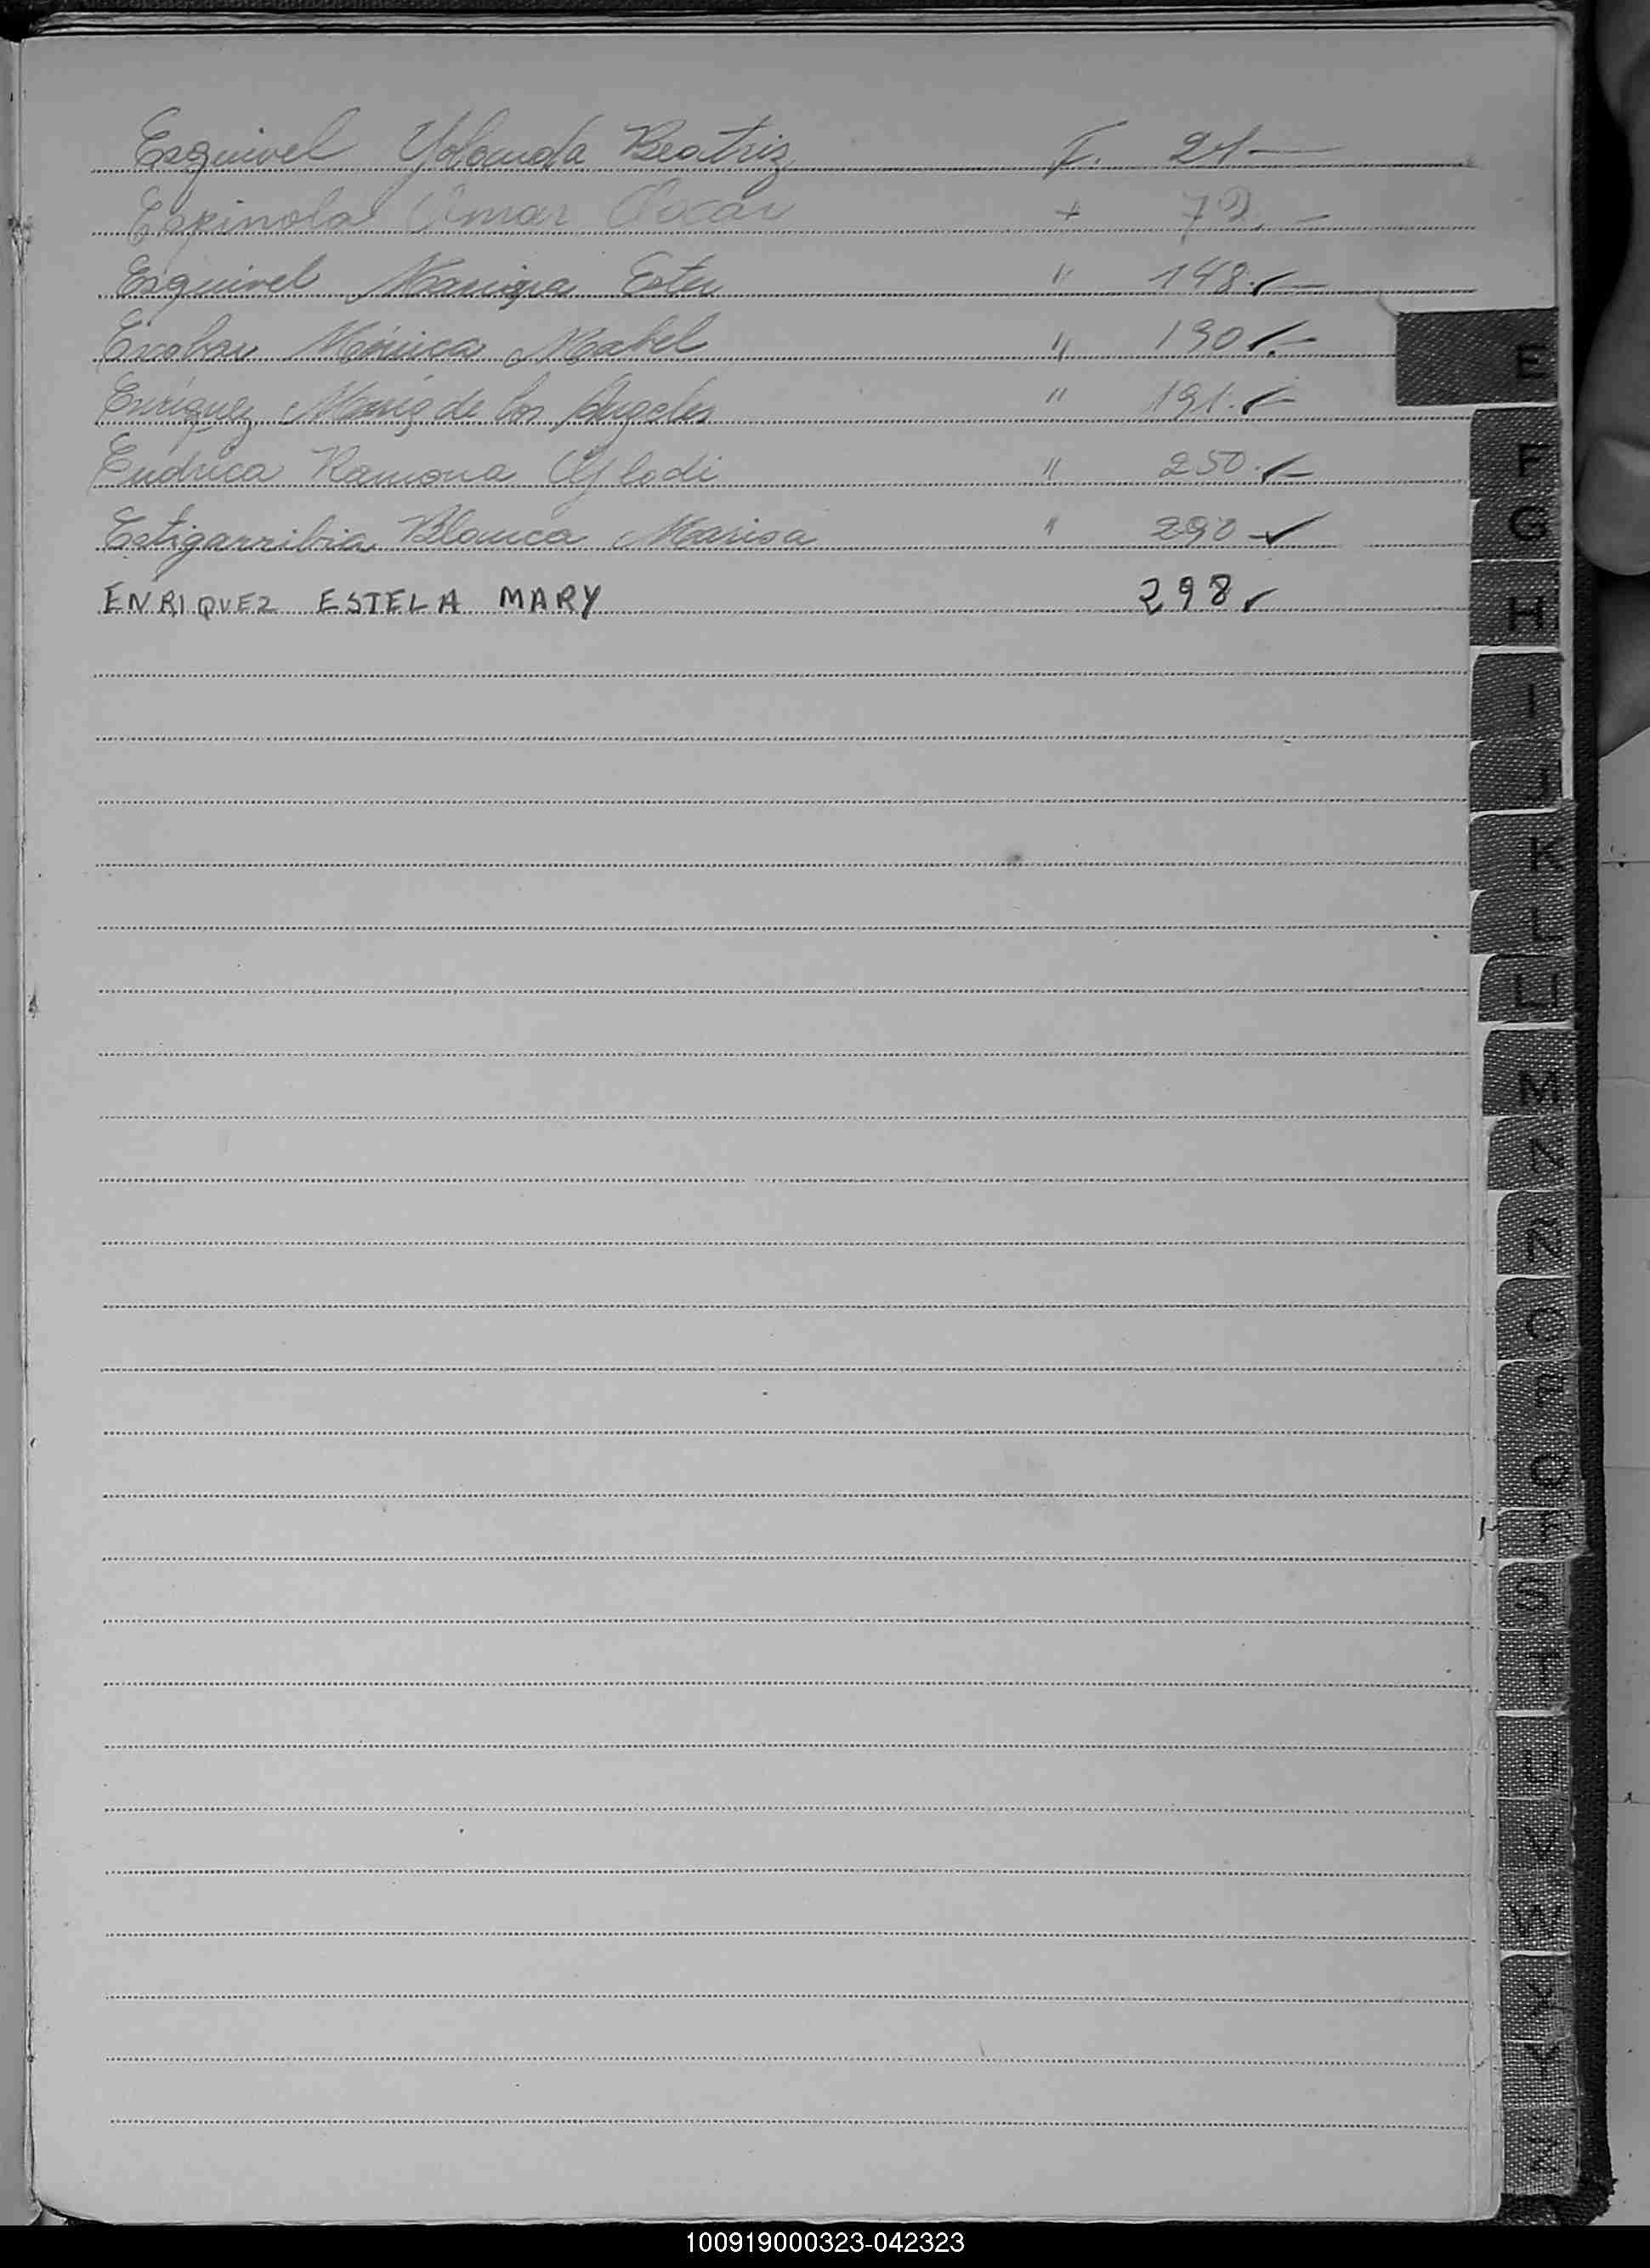 Esquivel Yolanda Beatriz F. 21 —
Espinola Omar Oscar + 72. —
Esquivel Ester " 148. —
Escobar Mónica Mabel " 190 —
Enríquez María de los Angeles " 191. —
Ramona " 250. —
Estigarribia Blanca Marisa " 290 ✓
ENRIQUEZ ESTELA MARY 298 ✓
E
F
G
H
I
J
K
L
LL
M
N
Ñ
O
P
Q
R
S
T
U
V
W
X
Y
Z
100919000323-042323